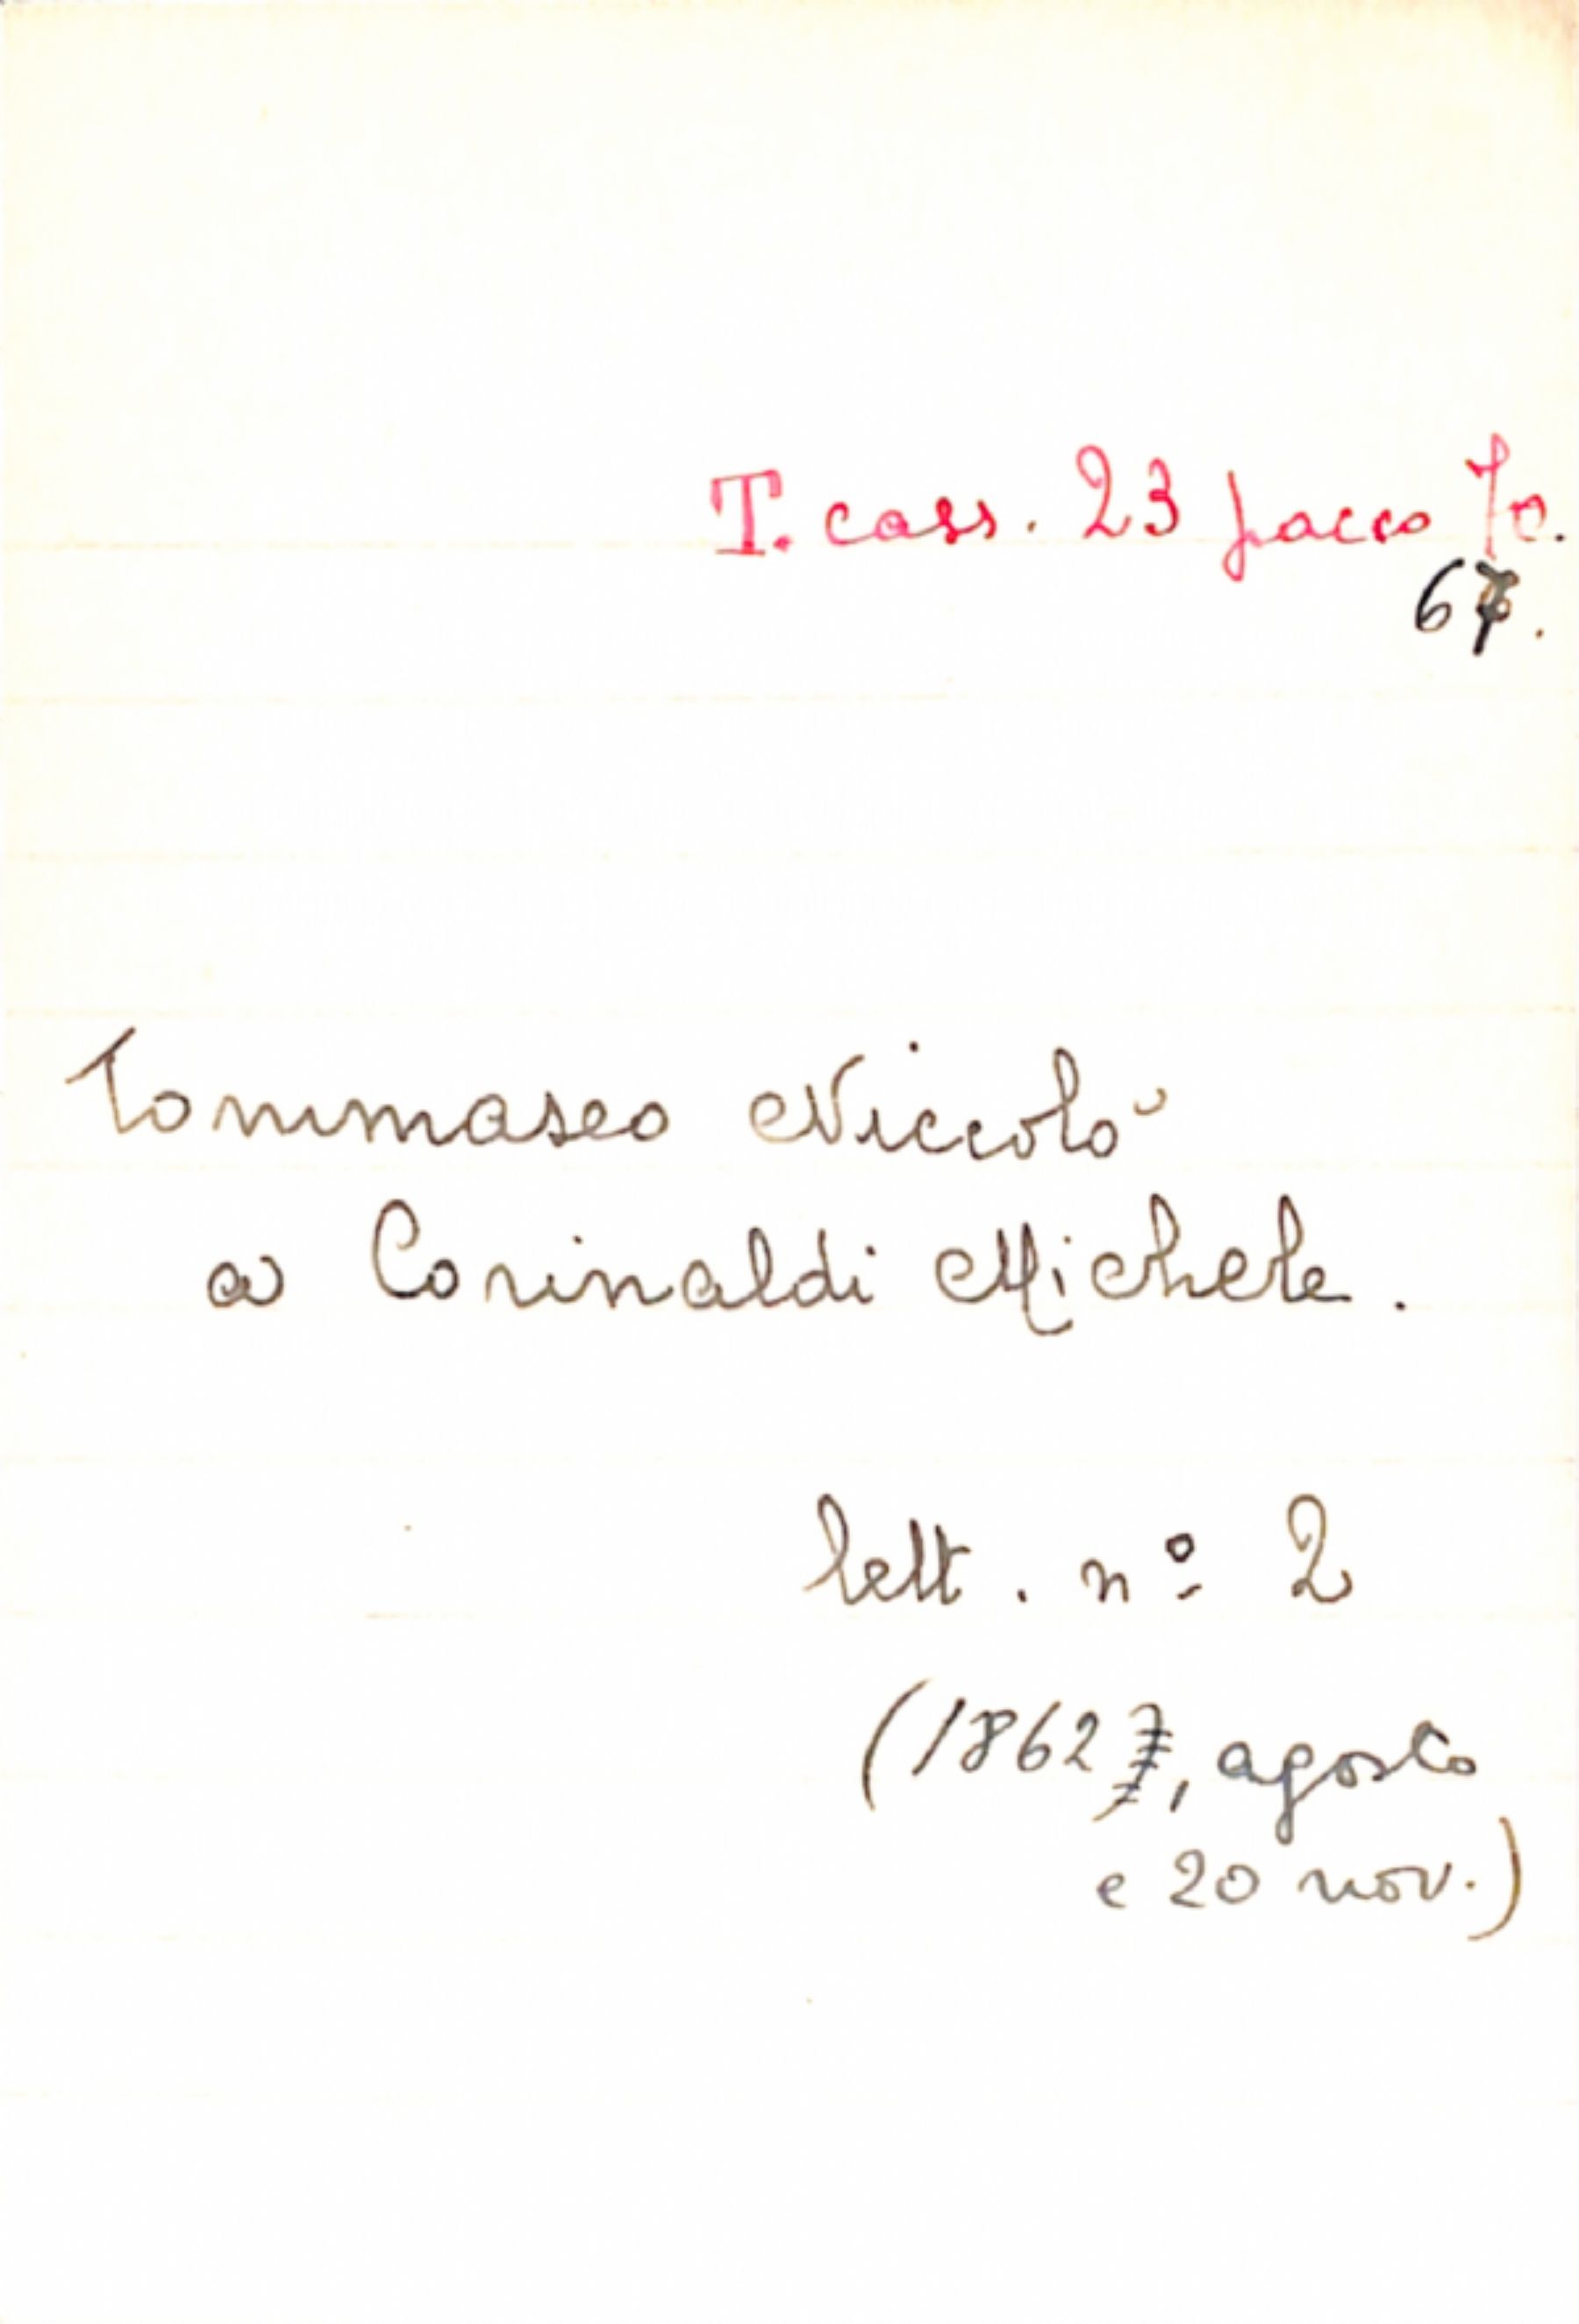 T. cass. 23 pacco 70.
67.
Tommaseo Niccolò
a Corinaldi Michele.
lett. nº 2
(1862, agosto
e 20 nov.)